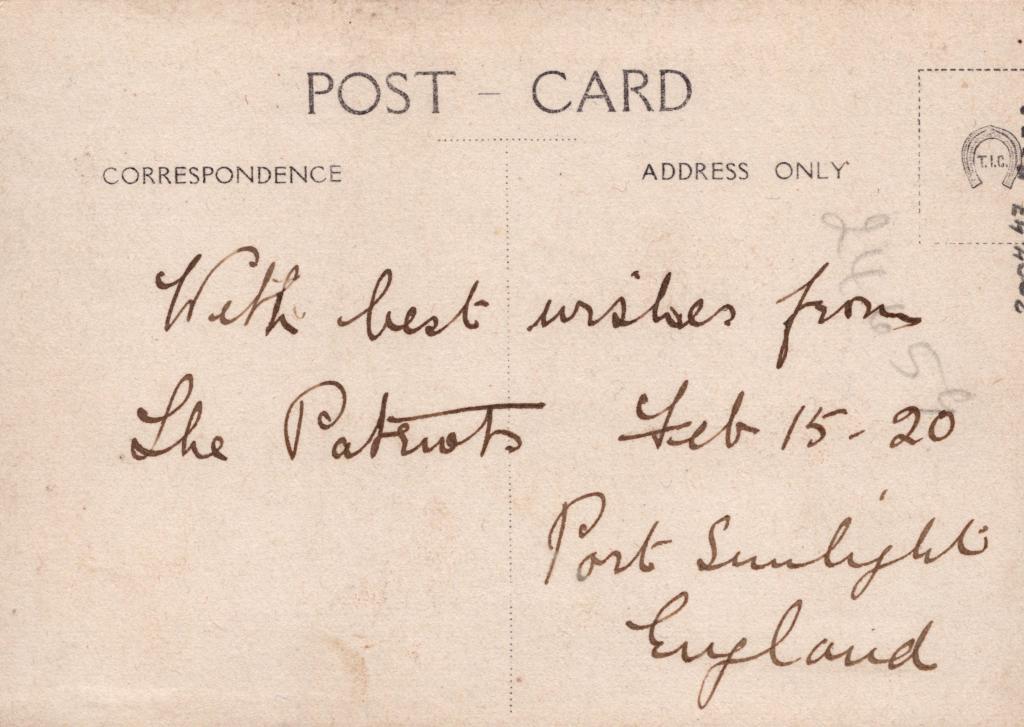 POST - CARD
CORRESPONDENCE
ADDRESS ONLY
T.I.C.
With best wishes from
The Patriots Feb 15 - 20
Port Sunlight
England